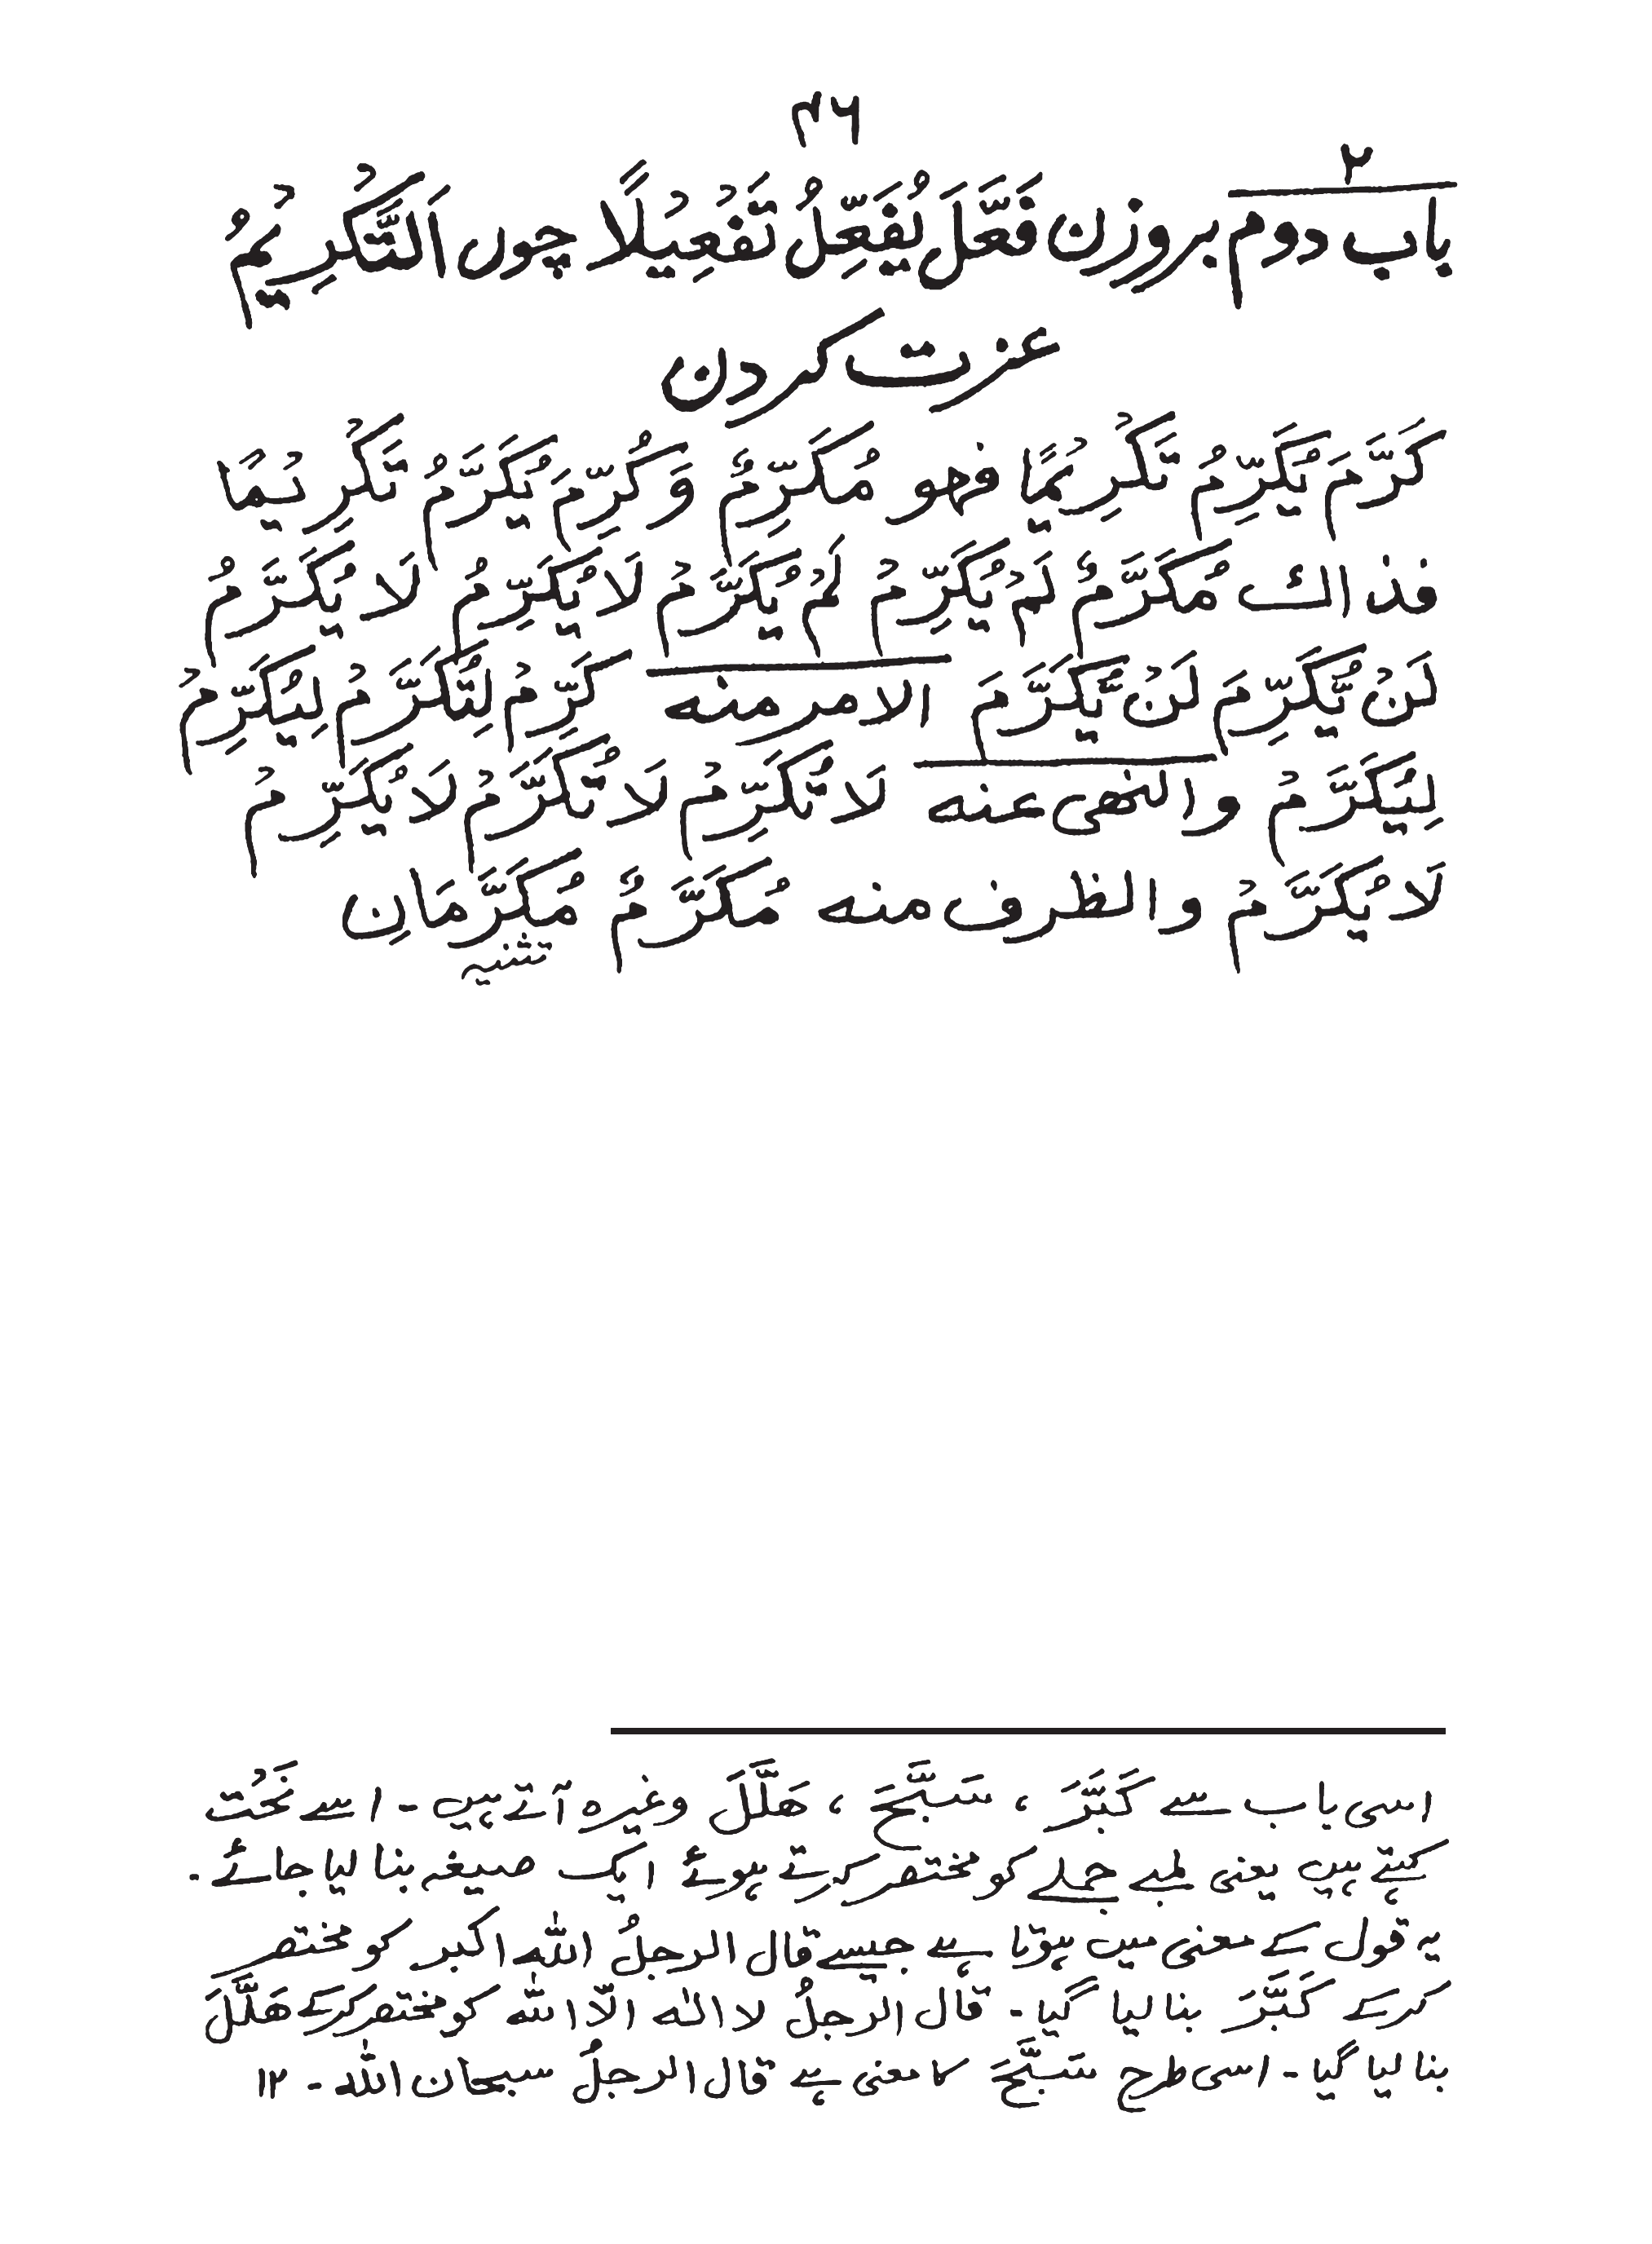 ۴۶
۲
باب دوم بروزن فَعَّلَ يُفَعِّلُ تَفْعِيْلًا چوں اَلتَّكْرِيْمُ
عزت کردن
كَرَّمَ يُكَرِّمُ تَكْرِيْمًا فهو مُكَرِّمٌ وَ كُرِّمَ يُكَرَّمُ تَكْرِيْمًا
فذاك مُكَرَّمٌ لَمْ يُكَرِّمْ لَمْ يُكَرَّمْ لَا يُكَرِّمُ لَا يُكَرَّمُ
لَنْ يُّكَرِّمَ لَنْ يُّكَرَّمَ الامر منه كَرِّمْ لِتُكَرَّمْ لِيُكَرِّمْ
لِيُكَرَّمْ والنهى عنه لَا تُكَرِّمْ لَا تُكَرَّمْ لَا يُكَرِّمْ
لَا يُكَرَّمْ والظرف منه مُكَرَّمٌ مُكَرَّمَانِ
تثنیہ
اسی باب سے كَبَّرَ ، سَبَّحَ ، هَلَّلَ وغیرہ آتے ہیں ۔ اسے نَحْت
کہتے ہیں یعنی لمبے جملے کو مختصر کرتے ہوئے ایک صیغہ بنا لیا جائے ۔
یہ قول کے معنی میں ہوتا ہے جیسے قال الرجلُ اللّٰه اکبر کو مختصر
کرکے كَبَّرَ بنا لیا گیا ۔ قال الرجلُ لا الٰه الّا اللّٰه کو مختصر کرکے هَلَّلَ
بنا لیا گیا ۔ اسی طرح سَبَّحَ کا معنی ہے قال الرجلُ سبحان اللّٰه ۔ ۱۲